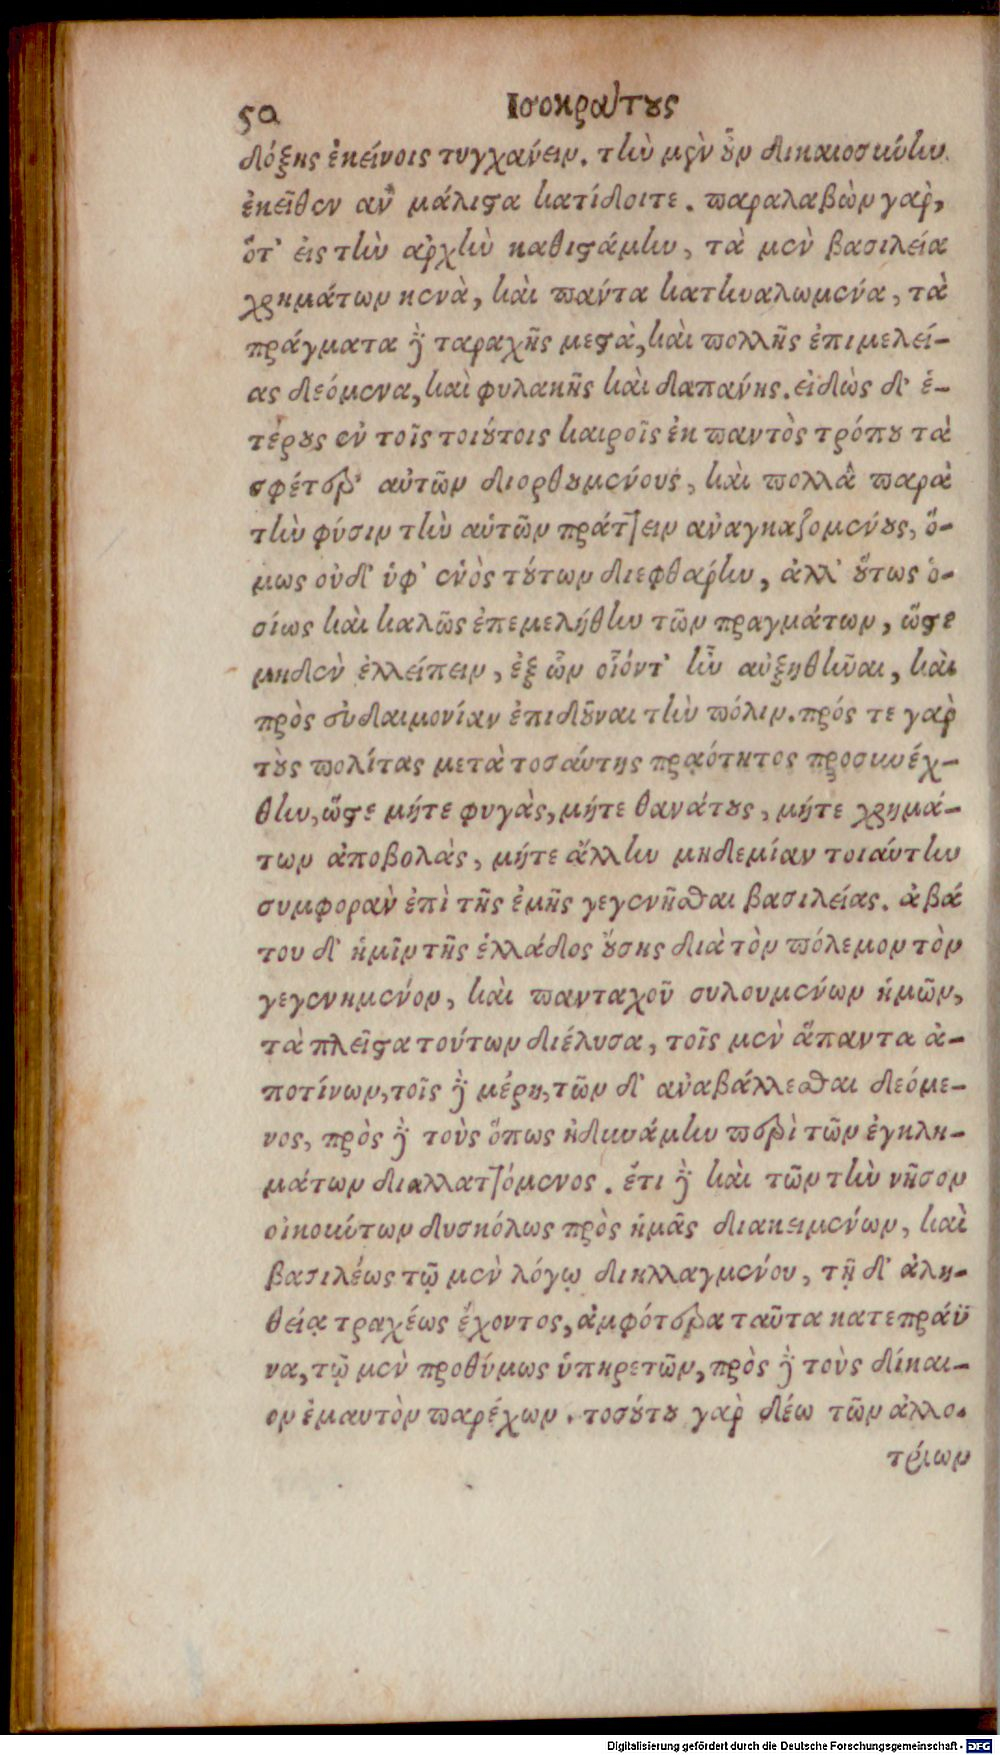 50 Ισοκράτους
δόξης ἐκείνοις τυγχάνειν. τὴν μὲν οὖν δικαιοσύνην
ἐκεῖθεν ἂν μάλιστα κατίδοιτε. παραλαβὼν γὰρ,
ὅτ' εἰς τὴν ἀρχὴν καθιστάμην, τὰ μὲν βασιλεία
χρημάτων κενὰ, καὶ πάντα κατηναλωμένα, τὰ
πράγματα δὲ ταραχῆς μεστὰ, καὶ πολλῆς ἐπιμελεί-
ας δεόμενα, καὶ φυλακῆς καὶ δαπάνης. εἰδὼς δ' ἑ-
τέρους ἐν τοῖς τοιούτοις καιροῖς ἐκ παντὸς τρόπου τὰ
σφέτερ' αὐτῶν διορθουμένους, καὶ πολλὰ παρὰ
τὴν φύσιν τὴν αὑτῶν πράττειν ἀναγκαζομένους, ὅ-
μως οὐδ' ὑφ' ἑνὸς τούτων διεφθάρην, ἀλλ' οὕτως ὁ-
σίως καὶ καλῶς ἐπεμελήθην τῶν πραγμάτων, ὥστε
μηδὲν ἐλλείπειν, ἐξ ὧν οἷόντ' ἦν αὐξηθῆναι, καὶ
πρὸς εὐδαιμονίαν ἐπιδοῦναι τὴν πόλιν. πρός τε γὰρ
τοὺς πολίτας μετὰ τοσαύτης πραότητος προσηνέχ-
θην, ὥστε μήτε φυγὰς, μήτε θανάτους, μήτε χρημά-
των ἀποβολὰς, μήτε ἄλλην μηδεμίαν τοιαύτην
συμφορὰν ἐπὶ τῆς ἐμῆς γεγενῆσθαι βασιλείας. ἀβά
του δ' ἡμῖν τῆς ἑλλάδος οὔσης διὰ τὸν πόλεμον τὸν
γεγενημένον, καὶ πανταχοῦ συλουμένων ἡμῶν,
τὰ πλεῖστα τούτων διέλυσα, τοῖς μὲν ἅπαντα ἀ-
ποτίνων, τοῖς δὲ μέρη, τῶν δ' ἀναβάλλεσθαι δεόμε-
νος, πρὸς δὲ τοὺς ὅπως ἠδυνάμην περὶ τῶν ἐγκλη-
μάτων διαλλαττόμενος. ἔτι δὲ καὶ τῶν τὴν νῆσον
οἰκούντων δυσκόλως πρὸς ἡμᾶς διακειμένων, καὶ
βασιλέως τῷ μὲν λόγῳ διηλλαγμένου, τῇ δ' ἀλη-
θείᾳ τραχέως ἔχοντος, ἀμφότερα ταῦτα κατεπράϋ
να, τῷ μὲν προθύμως ὑπηρετῶν, πρὸς δὲ τοὺς δίκαι-
ον ἐμαυτὸν παρέχων. τοσούτου γὰρ δέω τῶν ἀλλο-
τρίων
Digitalisierung gefördert durch die Deutsche Forschungsgemeinschaft - DFG